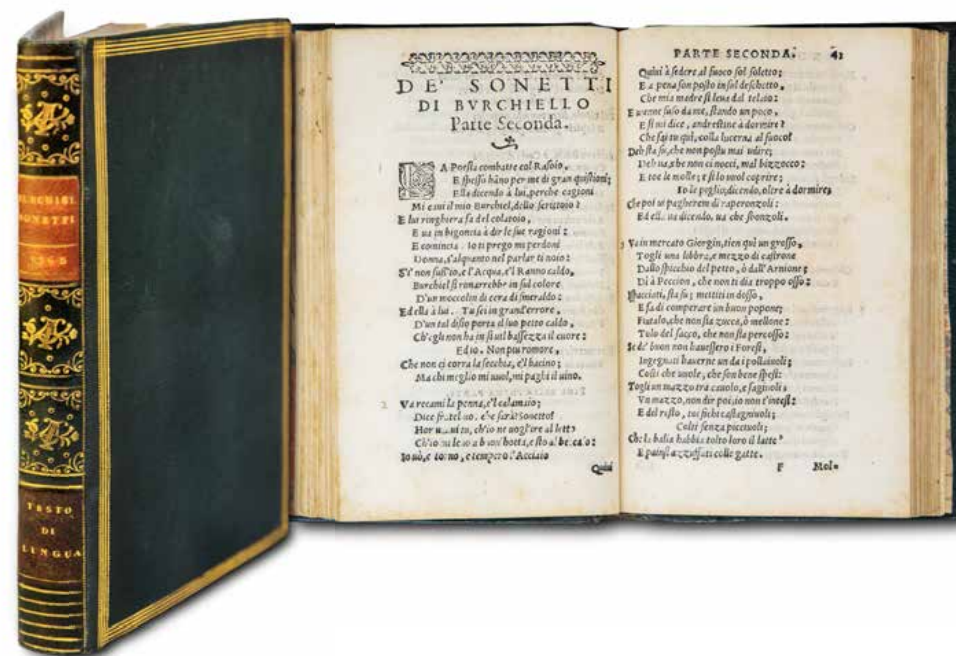 BURCHIEL
SONETTI
TESTO
DI
LINGUA
DE' SONETTI
DI BVRCHIELLO
Parte Seconda.
LA Poesia combatte col Rasoio,
E spesso hãno per me di gran quistioni;
Ella dicendo à lui, perche cagioni
Mi caui il mio Burchiel, dello scrittoio?
E lui ringhiera fa del colatoio,
E va in bigoncia à dir le sue ragioni:
E comincia. Io ti prego mi perdoni
Donna, s'alquanto nel parlar ti noio:
S'i' non fuss'io, e l'Acqua, e'l Ranno caldo,
Burchiel si rimarrebbe in sul colore
D'un moccolin di cera di smeraldo:
Ed ella à lui. Tu sei in grand'errore,
D'un tal disio porta il suo petto caldo,
Ch'egli non ha in si uil bassezza il cuore:
Ed io. Non piu romore,
Che non ci corra la secchia, e'l bacino;
Ma chi meglio mi uuol, mi paghi il uino.
2 Va recami la penna, e'l calamaio;
Dice
Sonetto?
Ch'io
Io uò, e torno, e tempero l'Acciaio
Quiui
PARTE SECONDA. 41
Quiui à sedere al fuoco sol soletto;
E a pena son posto in sul deschetto,
Che mia madre si leua dal telaio:
E uienne suso da me, stando un poco,
E si mi dice, andrestine à dormire?
Che fai tu quì, colla lucerna al fuoco?
Deh sta su, che non postu mai udire;
Deh ua, che non ci nocci, mal bizzocco:
E toe le molle; e si lo uuol coprire;
Io le piglio, dicendo, oltre à dormire,
Che poi ui pagherem di raperonzoli:
Ed ella ua dicendo, ua che sponzoli.
3 Va in mercato Giorgin, tien quì un grosso,
Togli una libbra, e mezzo di castrone
Dallo spicchio del petto, ò dall'Arnione;
Dì à Peccion, che non ti dia troppo osso:
Spacciati, sta su; mettiti in dosso,
E fa di comperare un buon popone;
Fiutalo, che non sia zucca, ò mellone:
Tolo del sacco, che non sia percosso:
Se de' buon non hauessero i Foresi,
Ingegnati hauerne un da i pollaiuoli;
Costi che uuole, che son bene spesi:
Togli un mazzo tra cauolo, e fagiuoli,
Vn mazzo, non dir poi, io non t'intesi:
E del resto, toi fichi castagniuoli;
Colti senza picciuoli;
Che la balia habbia tolto loro il latte?
E painsi azzuffati colle gatte.
F Mol-